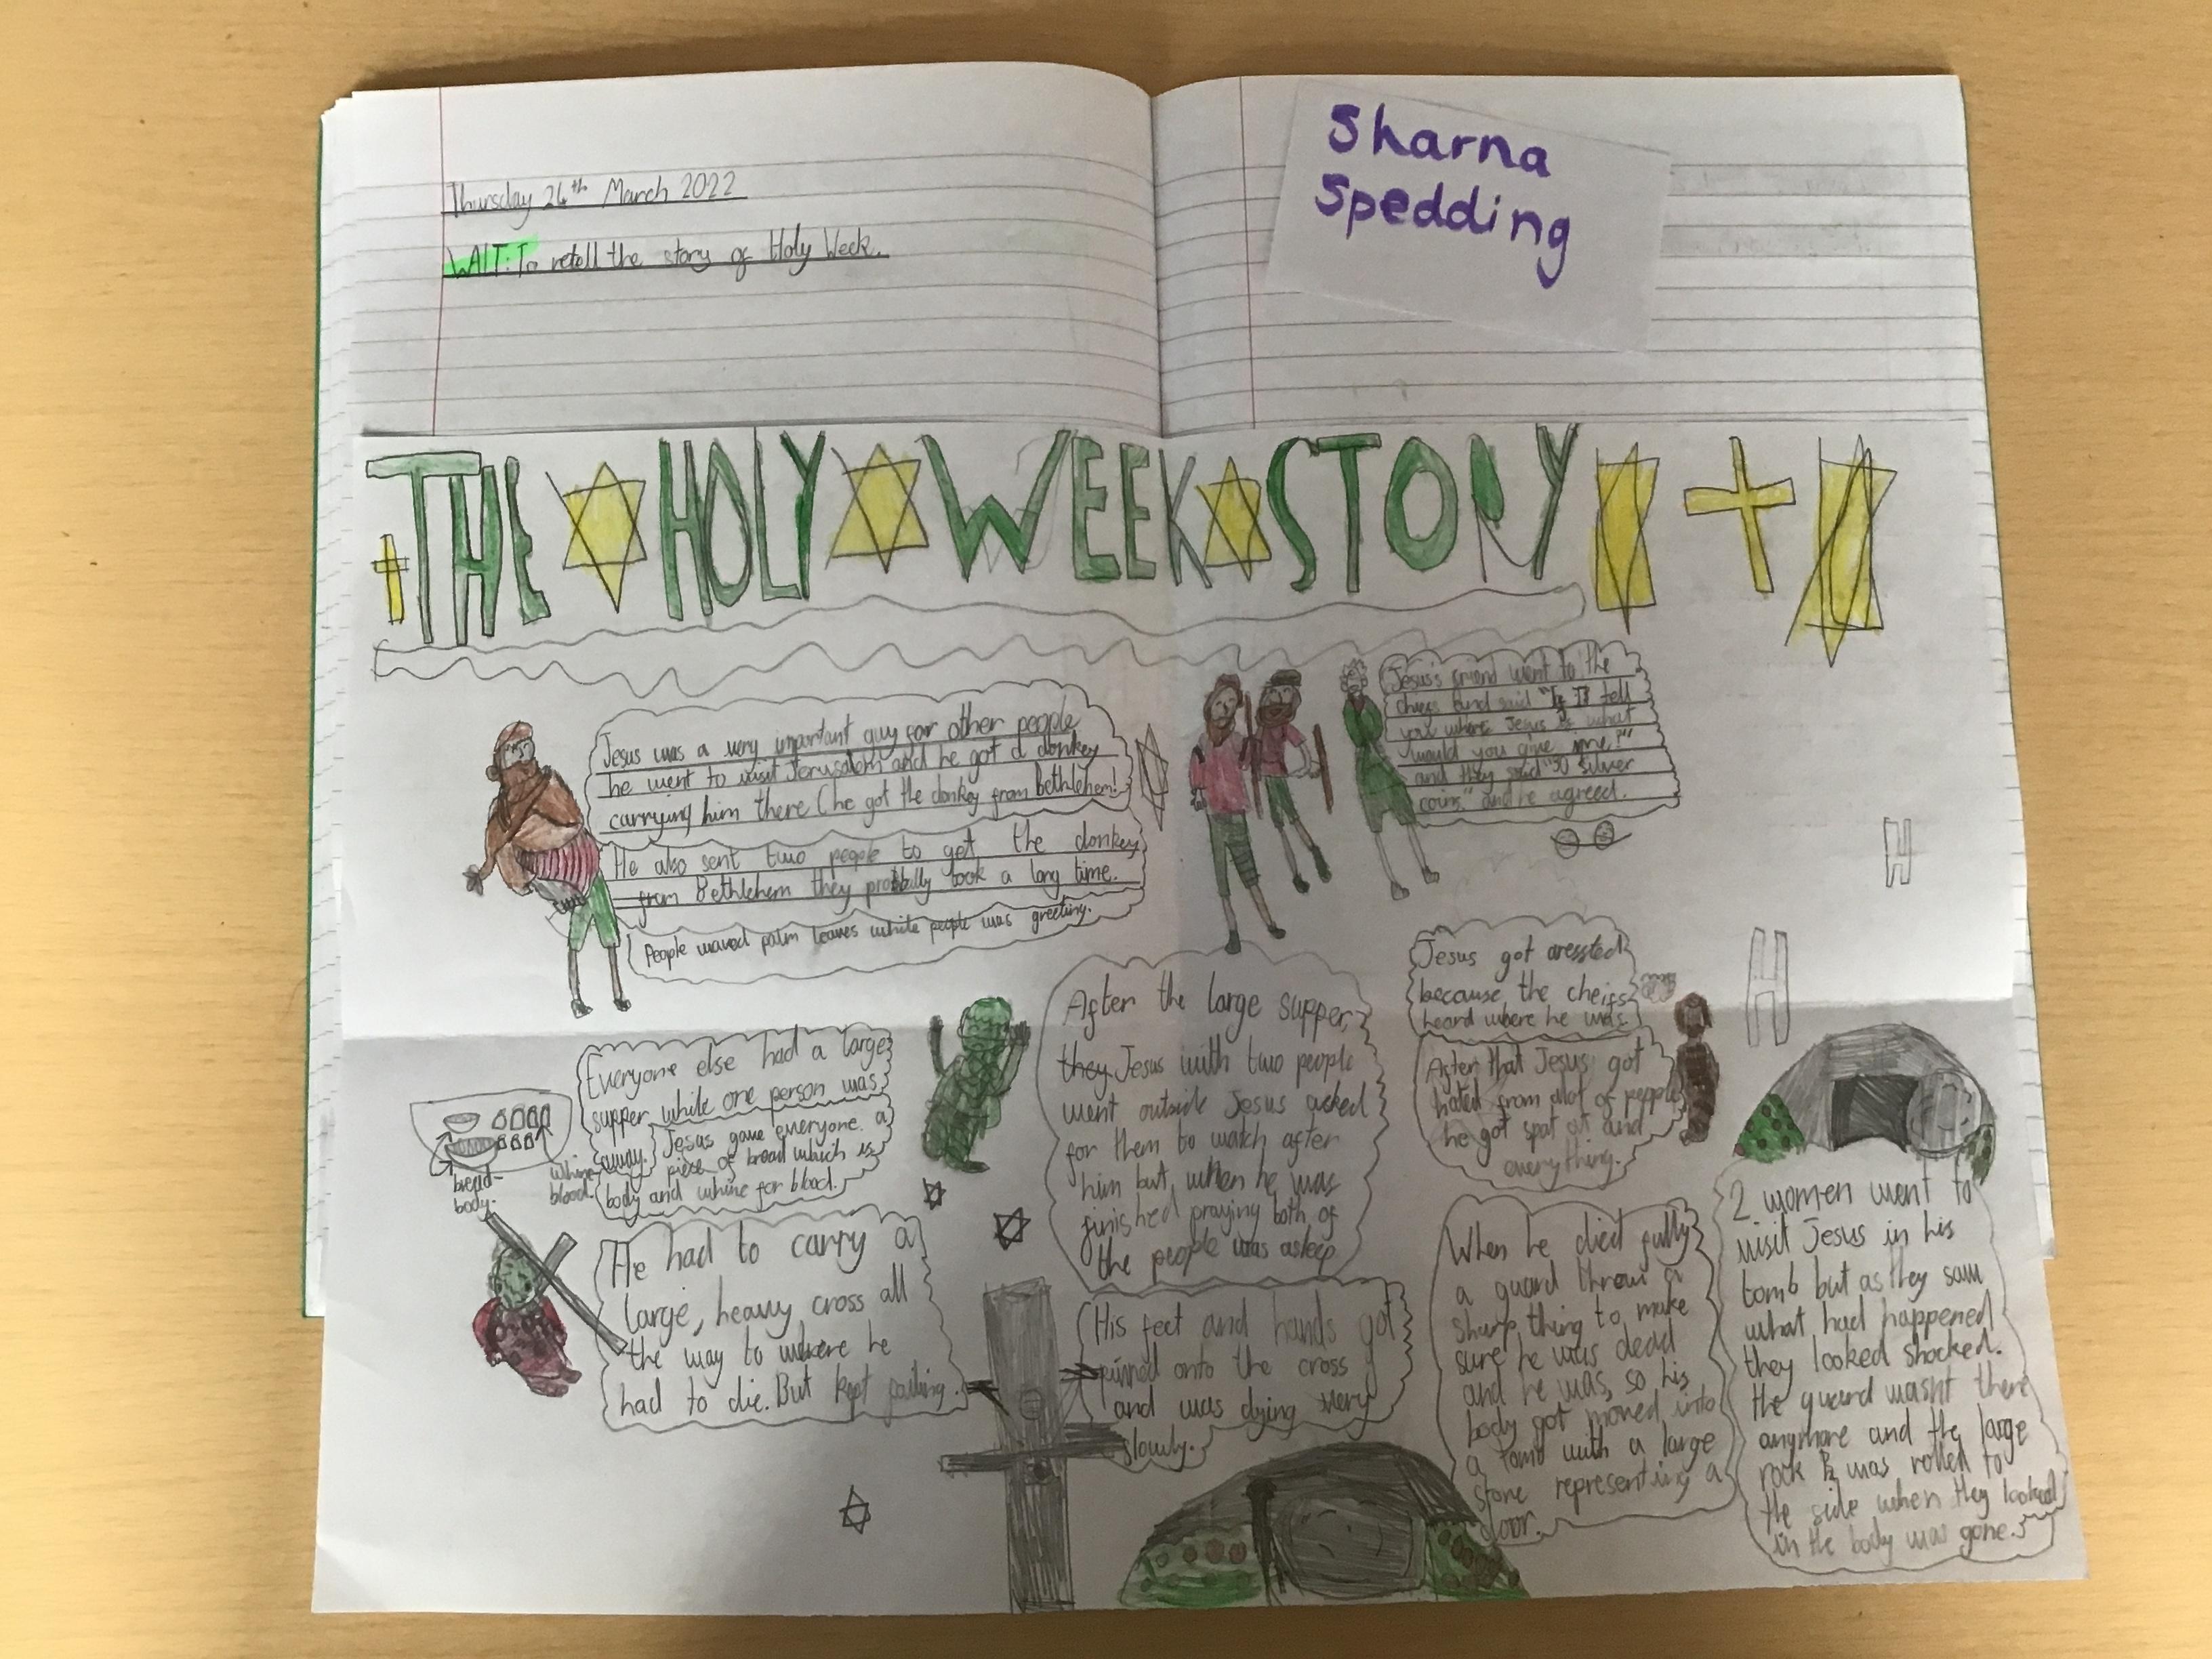 Thursday 24th March 2022
WALT: To retell the story of Holy Week.
Sharna
Spedding
THE HOLY WEEK STORY
Jesus was a very important guy for other people
he went to visit Jerusalem and he got a donkey
carrying him there (he got the donkey from Bethlehem!
He also sent two people to get the donkey
from Bethlehem they probally took a long time.
People waved palm leaves while people was greeting.
Jesus's friend went to the
chiefs and said "If I tell
you where Jesus is what
would you give me?"
and they said "30 silver
coins." and he agreed.
H
H
Everyone else had a large
supper while one person was
away. Jesus gave everyone a
piese of bread which is
body and whine for blood.
bread-
body.
Whine
blood.
After the large supper,
they Jesus with two people
went outside Jesus asked
for them to watch after
him but, when he was
finished praying both of
the people was asleep
Jesus got aressted
because the cheifs
heard where he was.
After that Jesus got
hated from alot of people
he got spat at and
everything.
He had to carry a
large, heavy cross all
the way to where he
had to die. But kept falling.
His feet and hands got
pinned onto the cross
and was dying very
slowly.
When he died fully
a guard threw a
sharp thing to make
sure he was dead
and he was, so his
body got moved into
a tomb with a large
stone representing a
door.
2 women went to
visit Jesus in his
tomb but as they saw
what had happened
they looked shocked.
the guard wasnt there
anymore and the large
rock was rolled to
the side when they looked
in the body was gone.